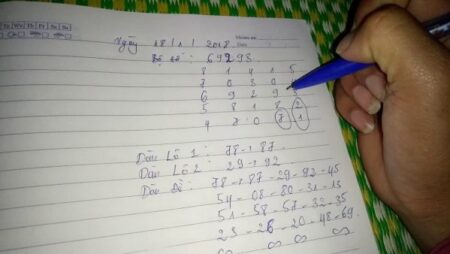 Ngày 18 / 1 / 2018
Bộ số: 69293.
8 1 4 1 5
7 0 3 0
6 9 2 9 3
5 8 1 8 2
4 7 0 7 1
Dàn Lô 1: 78 - 87
Dàn Lô 2: 29 - 92
Dàn Đề: 78 - 87 - 29 - 92 - 45
54 - 08 - 80 - 31 - 13
51 - 58 - 57 - 32 - 35
23 - 26 - 20 - 48 - 69